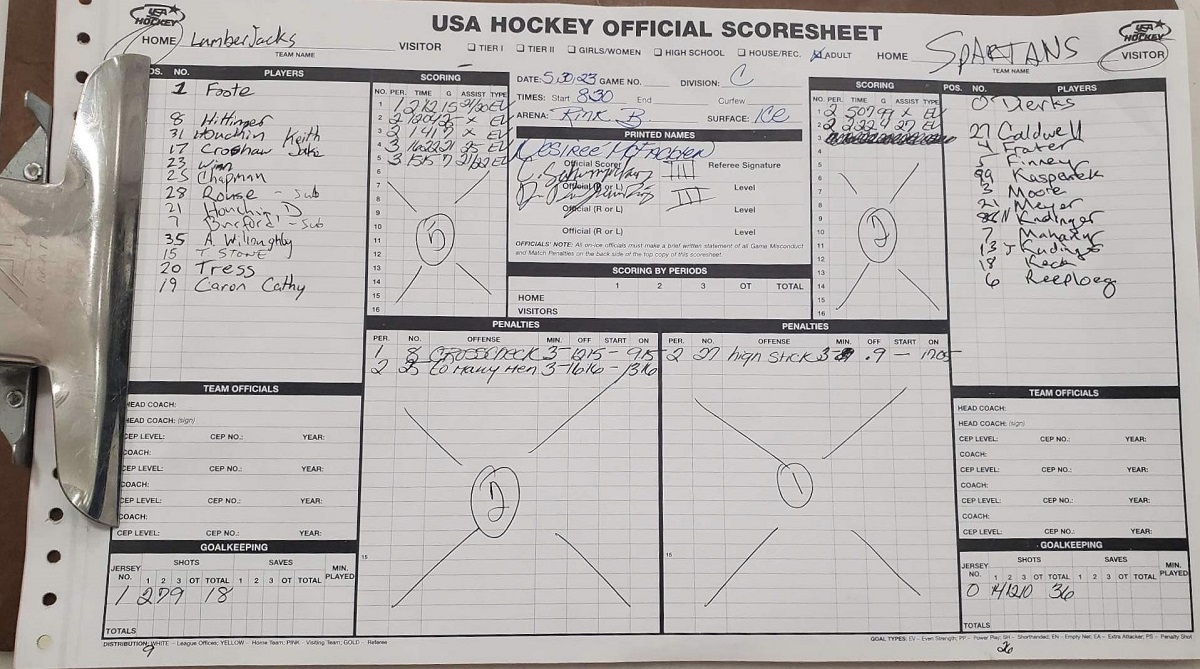 USA HOCKEY OFFICIAL SCORESHEET
USA HOCKEY
HOME LumberJacks VISITOR
TEAM NAME
☐ TIER I ☐ TIER II ☐ GIRLS/WOMEN ☐ HIGH SCHOOL ☐ HOUSE/REC. ADULT
HOME SPARTANS VISITOR
TEAM NAME
USA HOCKEY
OS. NO. PLAYERS
1 Foote
8 Hittinger
31 Houchin Keith
17 Croshaw Jake
23 Winn
25 Chapman
28 Rouse - Sub
21 Houchin D
7 Burford - Sub
35 A. Willoughby
15 T STONE
20 Tress
19 Caron Cathy
SCORING
NO. PER. TIME G ASSIST TYPE
1 1 212 15 21/20 EV
2 2 1204 25 x EV
3 2 1417 x EV
4 3 1622 21 25 EV
5 3 1515 7 21/22 EV
6
7
8
9
10
11
12
13
14
15
16
5
DATE: 5.30.23 GAME NO. DIVISION: C
TIMES: Start 830 End Curfew
ARENA: Rink B SURFACE: ICE
PRINTED NAMES
Official Scorer Referee Signature
III
Official (R or L) Level
III
Official (R or L) Level
Official (R or L) Level
OFFICIALS' NOTE: All on-ice officials must make a brief written statement of all Game Misconduct and Match Penalties on the back side of the top copy of this scoresheet.
SCORING BY PERIODS
1 2 3 OT TOTAL
HOME
VISITORS
SCORING
NO. PER. TIME G ASSIST TYPE
1 2 507 99 x EV
2 2 222 9 27 EV
3
4
5
6
7
8
9
10
11
12
13
14
15
16
2
POS. NO. PLAYERS
0 Dierks
27 Caldwell
4 Frater
5 Finney
99 Kasparek
3 Moore
21 Meyer
N Kndinger
7 Mahaffy
13 J Kndinger
18 Keck
6 Reeploeg
PENALTIES
PER. NO. OFFENSE MIN. OFF START ON
1 8 CROSSCHECK 3 - 1215 - 915
2 25 to Many Men 3 - 1616 - 1316
2
15
PENALTIES
PER. NO. OFFENSE MIN. OFF START ON
2 27 high stick 3 - .9 - 1705
1
15
TEAM OFFICIALS
HEAD COACH:
HEAD COACH: (sign)
CEP LEVEL: CEP NO.: YEAR:
COACH:
CEP LEVEL: CEP NO.: YEAR:
COACH:
CEP LEVEL: CEP NO.: YEAR:
COACH:
CEP LEVEL: CEP NO.: YEAR:
GOALKEEPING
JERSEY NO. SHOTS SAVES MIN. PLAYED
1 2 3 OT TOTAL 1 2 3 OT TOTAL
1 2 7 9 18
TOTALS
TEAM OFFICIALS
HEAD COACH:
HEAD COACH: (sign)
CEP LEVEL: CEP NO.: YEAR:
COACH:
CEP LEVEL: CEP NO.: YEAR:
COACH:
CEP LEVEL: CEP NO.: YEAR:
COACH:
CEP LEVEL: CEP NO.: YEAR:
GOALKEEPING
JERSEY NO. SHOTS SAVES MIN. PLAYED
1 2 3 OT TOTAL 1 2 3 OT TOTAL
0 14 12 10 36
TOTALS
DISTRIBUTION: WHITE - League Offices; YELLOW - Home Team; PINK - Visiting Team; GOLD - Referee
GOAL TYPES: EV - Even Strength; PP - Power Play; SH - Shorthanded; EN - Empty Net; EA - Extra Attacker; PS - Penalty Shot
9
26